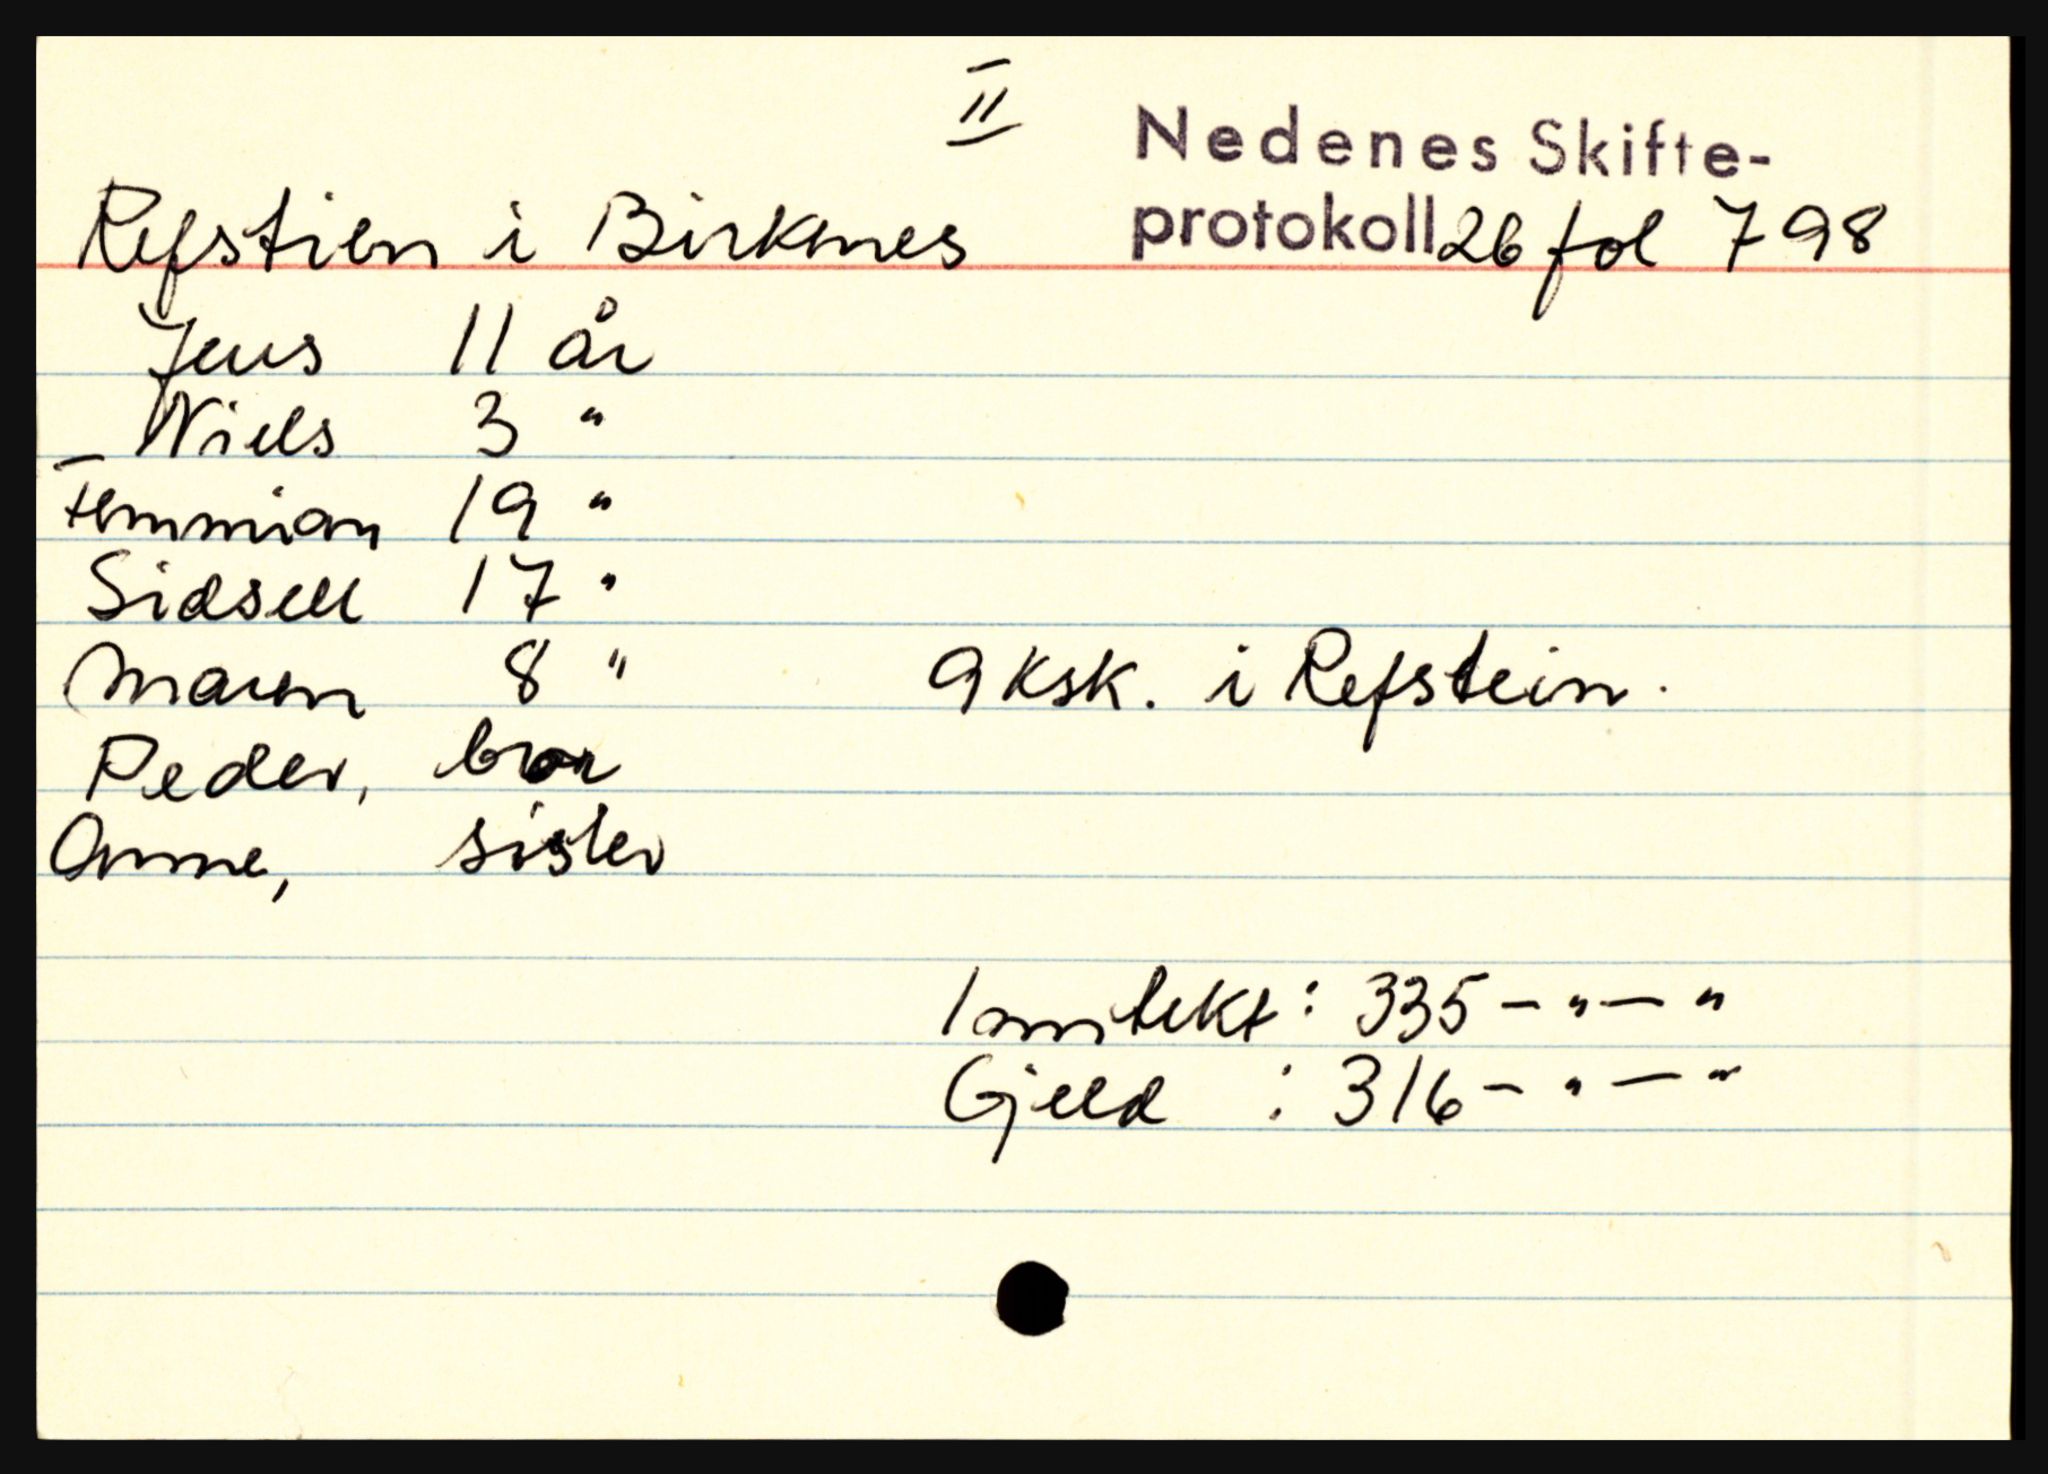 II
Nedenes Skifte-
protokoll 26 fol 798
Refstien i Birkenes
Jens 11 år
Niels 3 "
Temmian 19 "
Sidsell 17 "
Maren 8 " 9 ksk. i Refstein.
Peder, bror
Anne, sister
Inntekt : 335 - " - "
Gjeld : 316 - " - "